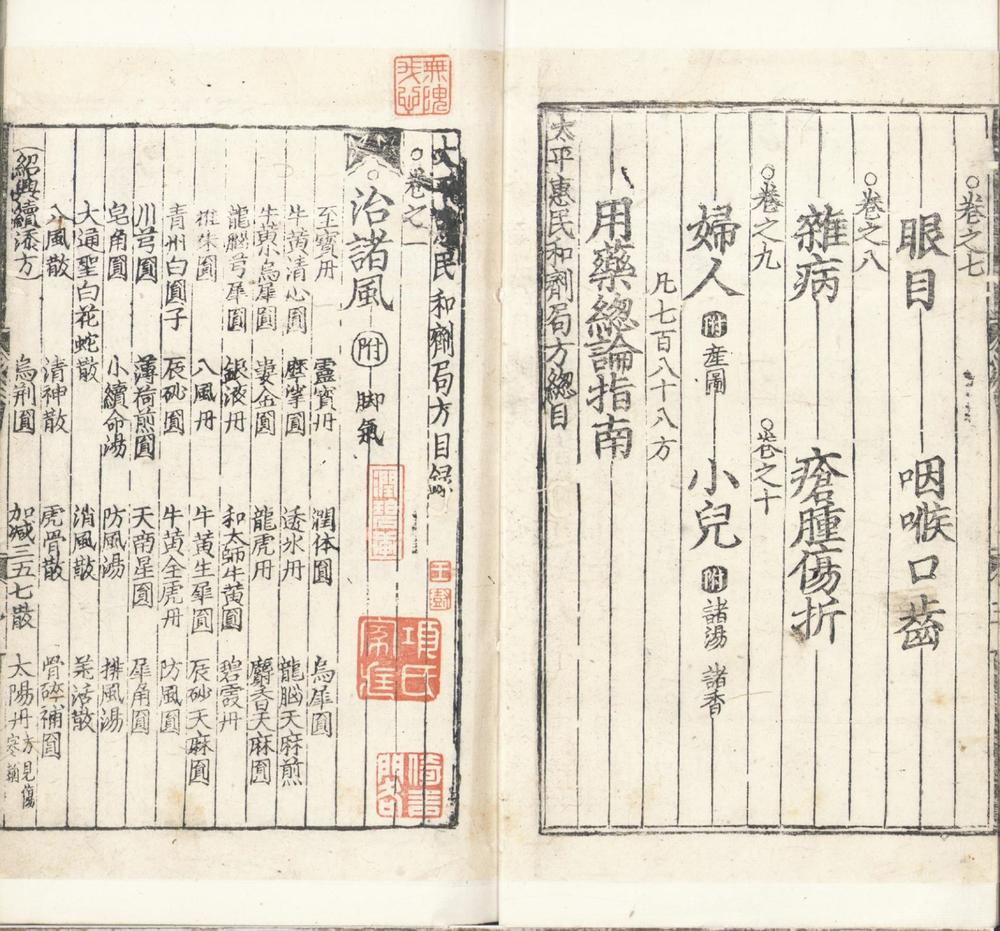 ○卷之七
眼目 咽喉口齒
○卷之八
雜病 瘡腫傷折
○卷之九 ○卷之十
婦人 附 産圖 小兒 附 諸湯 諸香
凡七百八十八方
用藥總論指南
太平惠民和劑局方總目
民和劑局方目錄
○卷之一
○治諸風 附 脚氣
至寶丹 靈寶丹 潤体圓 烏犀圓
牛黃清心圓 摩挲圓 透氷丹 龍腦天麻煎
牛黃烏犀圓 婁金圓 龍虎丹 麝香天麻圓
龍腦芎犀圓 銀液丹 和太師牛黃圓 碧霞丹
圓 八風丹 牛黃生犀圓 辰砂天麻圓
青州白圓子 辰砂圓 牛黃金虎丹 防風圓
川芎圓 薄荷煎圓 天南星圓 犀角圓
皂角圓 小續命湯 防風湯 排風湯
大通聖白花蛇散 消風散 羌活散
八風散 清神散 虎骨散 骨碎補圓
(紹興續添方) 烏荆圓 加減三五七散 太陽丹 方見傷寒類
無愧
王澍
項氏